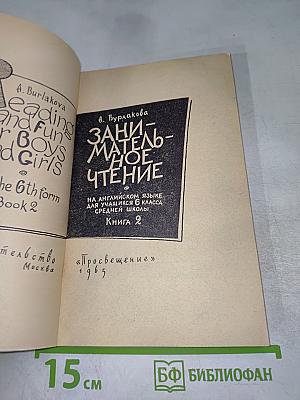 A. Burlakova
Reading
and Fun
for Boys
and Girls
the 6th form
Book 2
Москва
А. Бурлакова
ЗАНИ-
МАТЕЛЬ-
НОЕ
ЧТЕНИЕ
НА АНГЛИЙСКОМ ЯЗЫКЕ
ДЛЯ УЧАЩИХСЯ 6 КЛАССА
СРЕДНЕЙ ШКОЛЫ
Книга 2
«Просвещение»
1965
15 см
БФ БИБЛИОФАН